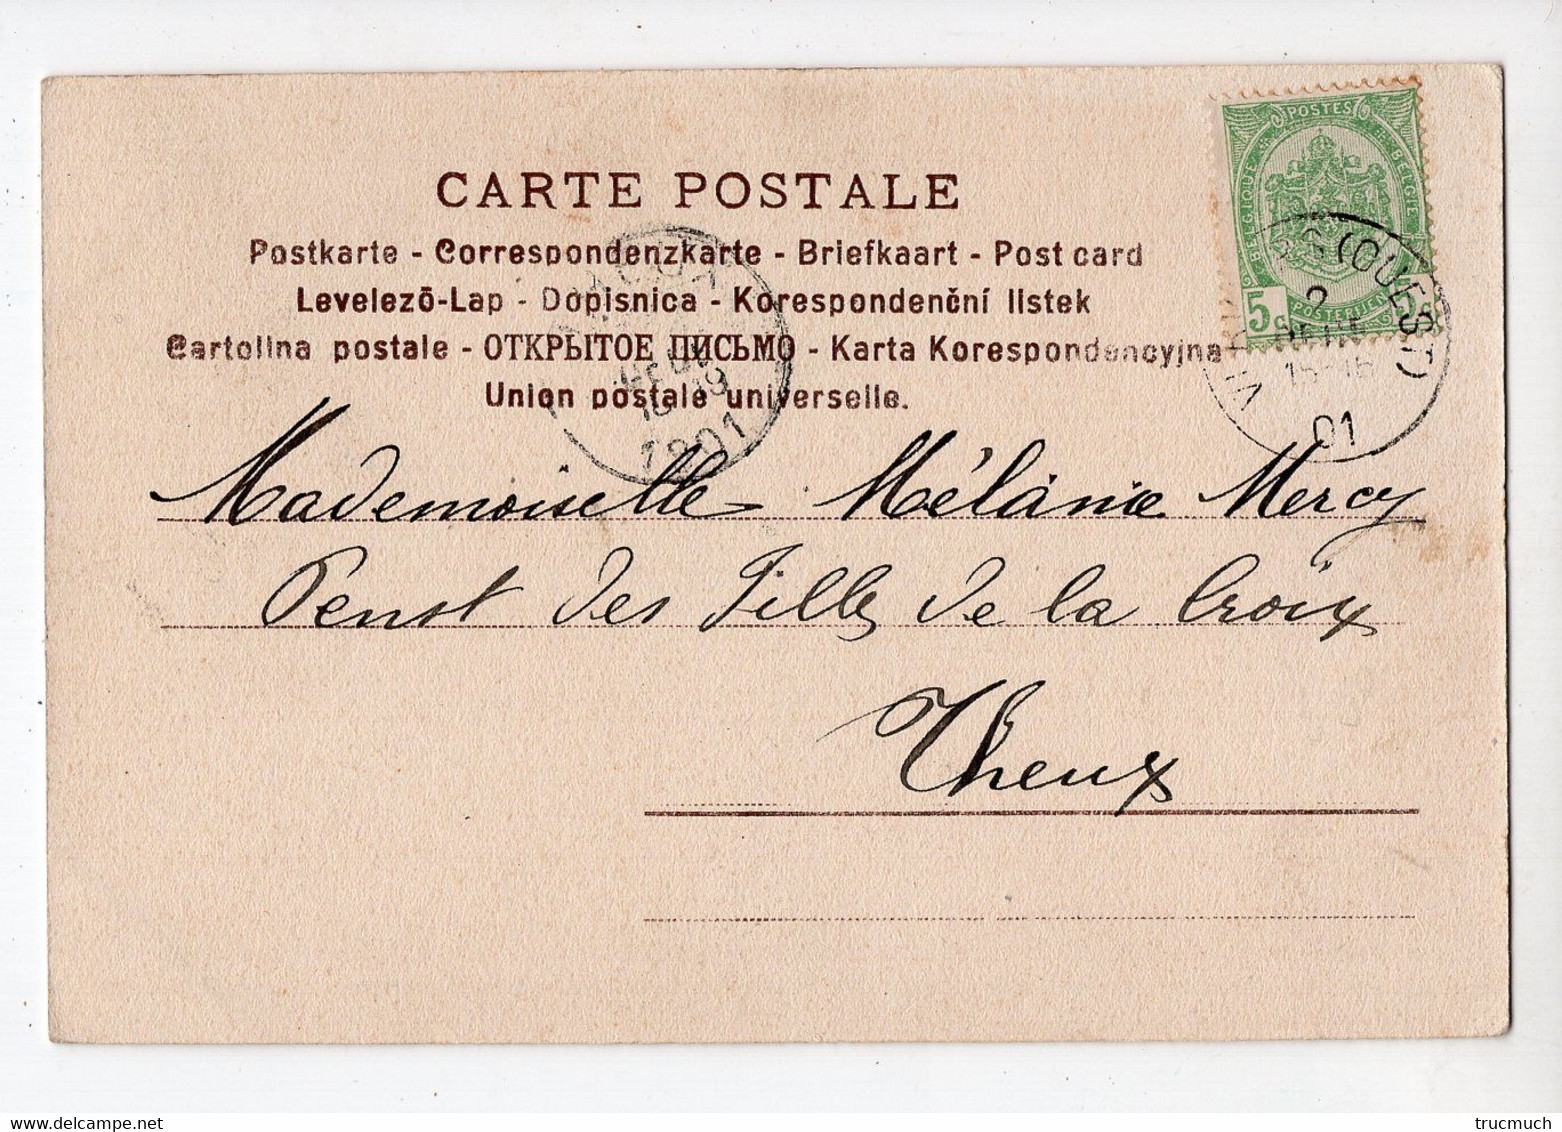 CARTE POSTALE
Postkarte - Correspondenzkarte - Briefkaart - Post card
Levelező-Lap - Dopisnica - Korespondenční listek
Cartolina postale - ОТКРЫТОЕ ПИСЬМО - Karta Korespondencyjna
Union postale universelle.
POSTES
BELGIQUE
BELGIE
POSTERIJEN
5c
5c
(OUEST)
01
1901
Mademoiselle Mélanie Mercy
Penst des Filles de la Croix
Theux
trucmuch